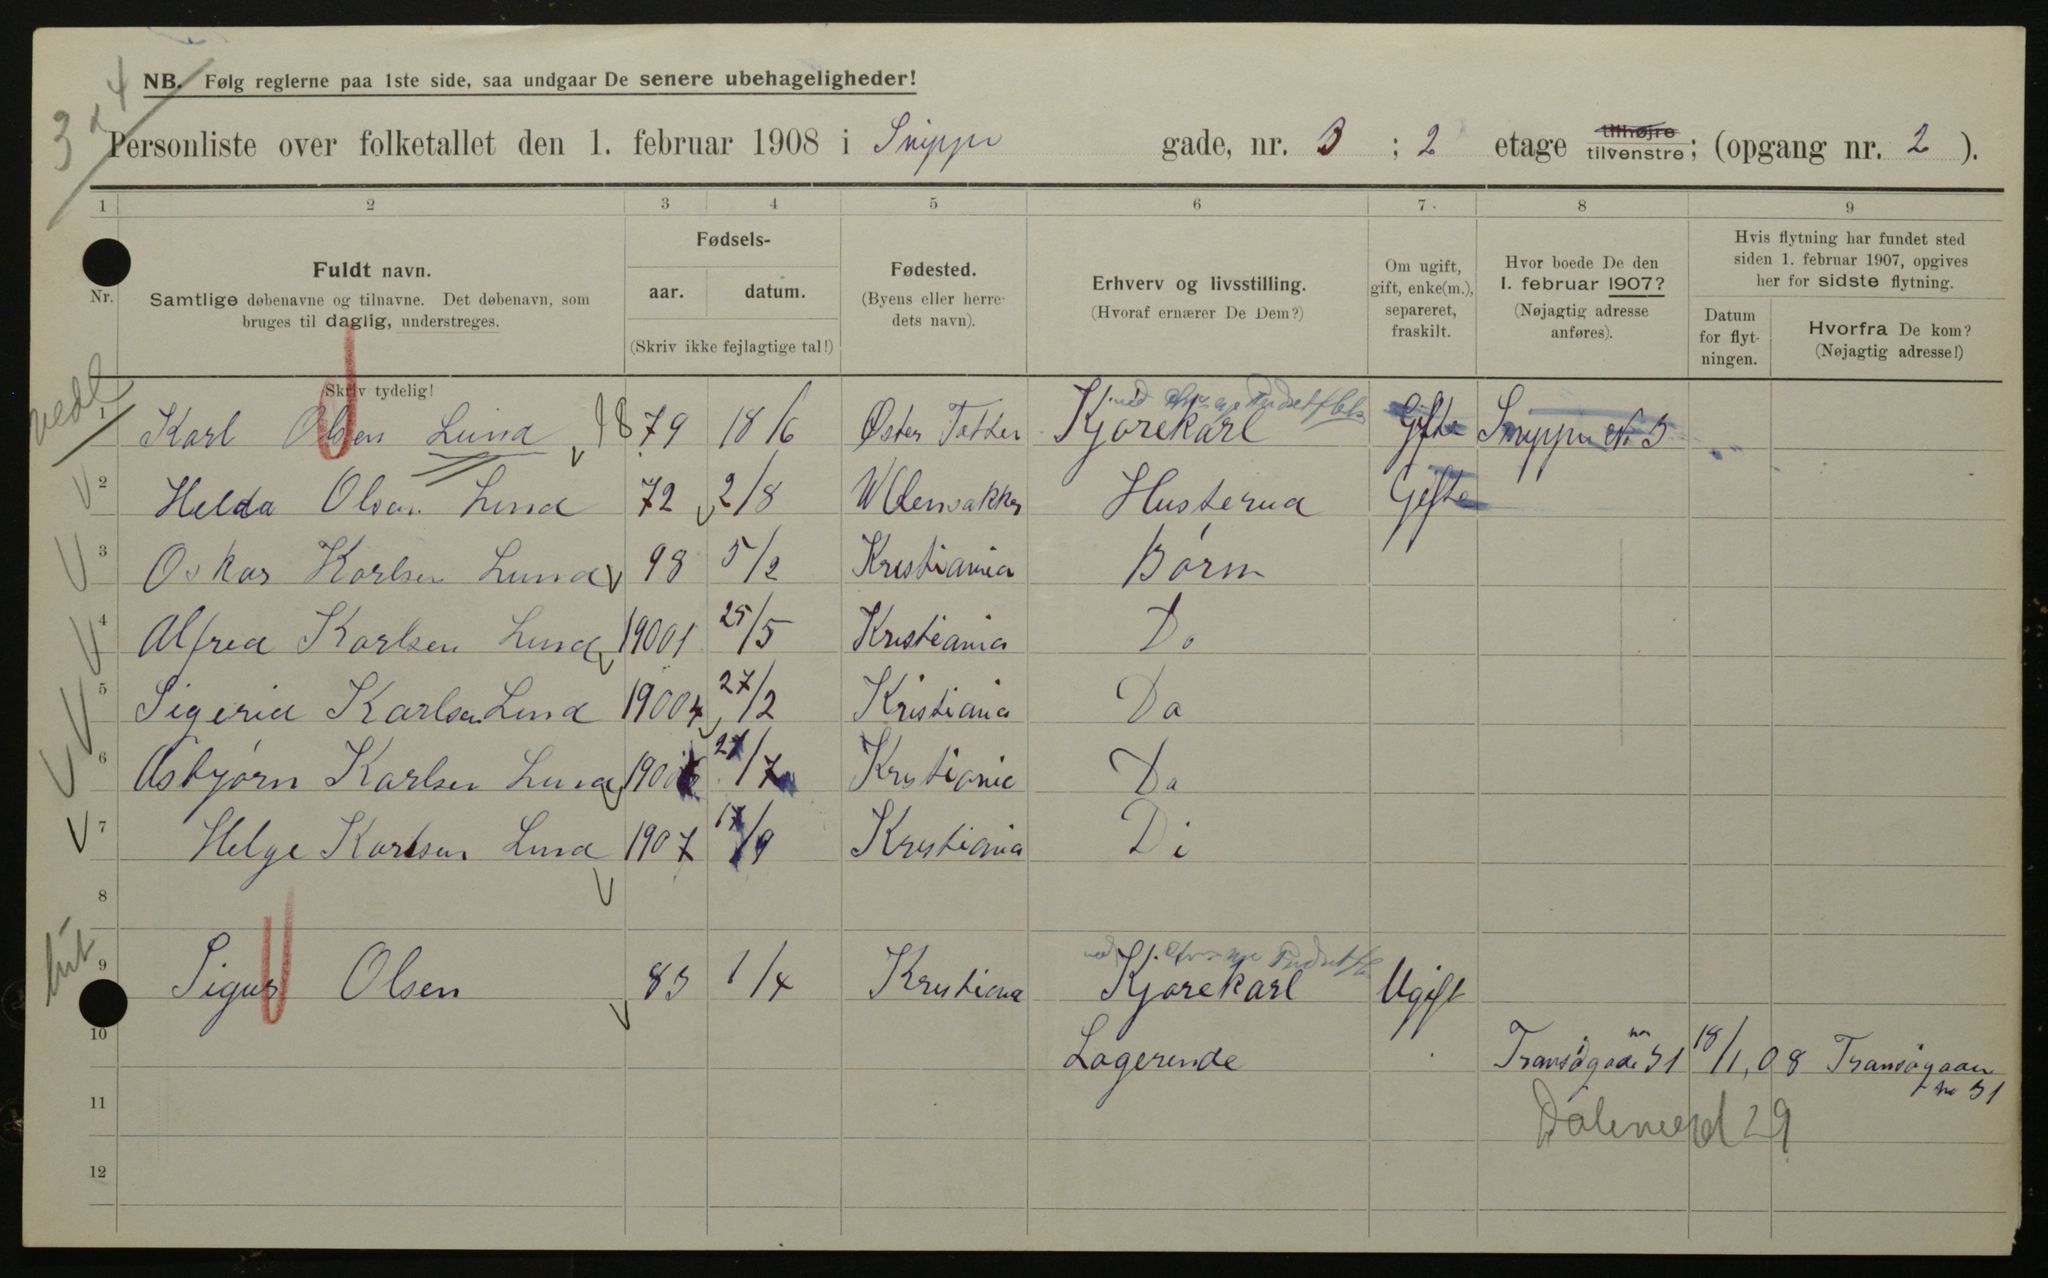 NB. Følg reglerne paa 1ste side, saa undgaar De senere ubehageligheder!
Personliste over folketallet den 1. februar 1908 i Snippen gade, nr. 3 ; 2 etage tilhøjre tilvenstre; (opgang nr. 2 ).
1 2 3 4 5 6 7. 8 9
Nr.
Fuldt navn.
Samtlige døbenavne og tilnavne. Det døbenavn, som
bruges til daglig, understreges.
Skriv tydelig!
Fødsels-
aar. datum.
(Skriv ikke fejlagtige tal!)
Fødested.
(Byens eller herre-
dets navn).
Erhverv og livsstilling.
(Hvoraf ernærer De Dem?)
Om ugift,
gift, enke(m.),
separeret,
fraskilt.
Hvor boede De den
1. februar 1907?
(Nøjagtig adresse
anføres).
Hvis flytning har fundet sted
siden 1. februar 1907, opgives
her for sidste flytning.
Datum
for flyt-
ningen.
Hvorfra De kom?
(Nøjagtig adresse!)
1 Karl Olsen Lund 1879 18/6 Øster Totten Kjørekarl Gifte Snippen No 3
2 Helda Olsen Lund 72 2/8 Ullensakker Husterua Gifte
3 Oskar Karlsen Lund 98 5/2 Kristiania Børn
4 Alfred Karlsen Lund 19001 25/5 Kristiania Do
5 Sigerid Karlsen Lund 19004 27/2 Kristiania Do
6 Asbjørn Karlsen Lund 1906 27/7 Kristiania Do
7 Helge Karlsen Lund 1907 17/9 Kristiania Do
8
9 Sigur Olsen 83 1/4 Kristiana Kjørekarl Ugift
10 Logerende Tromsøgade no 31 18/1, 08 Tromsøgaden
no 31
11 29
12